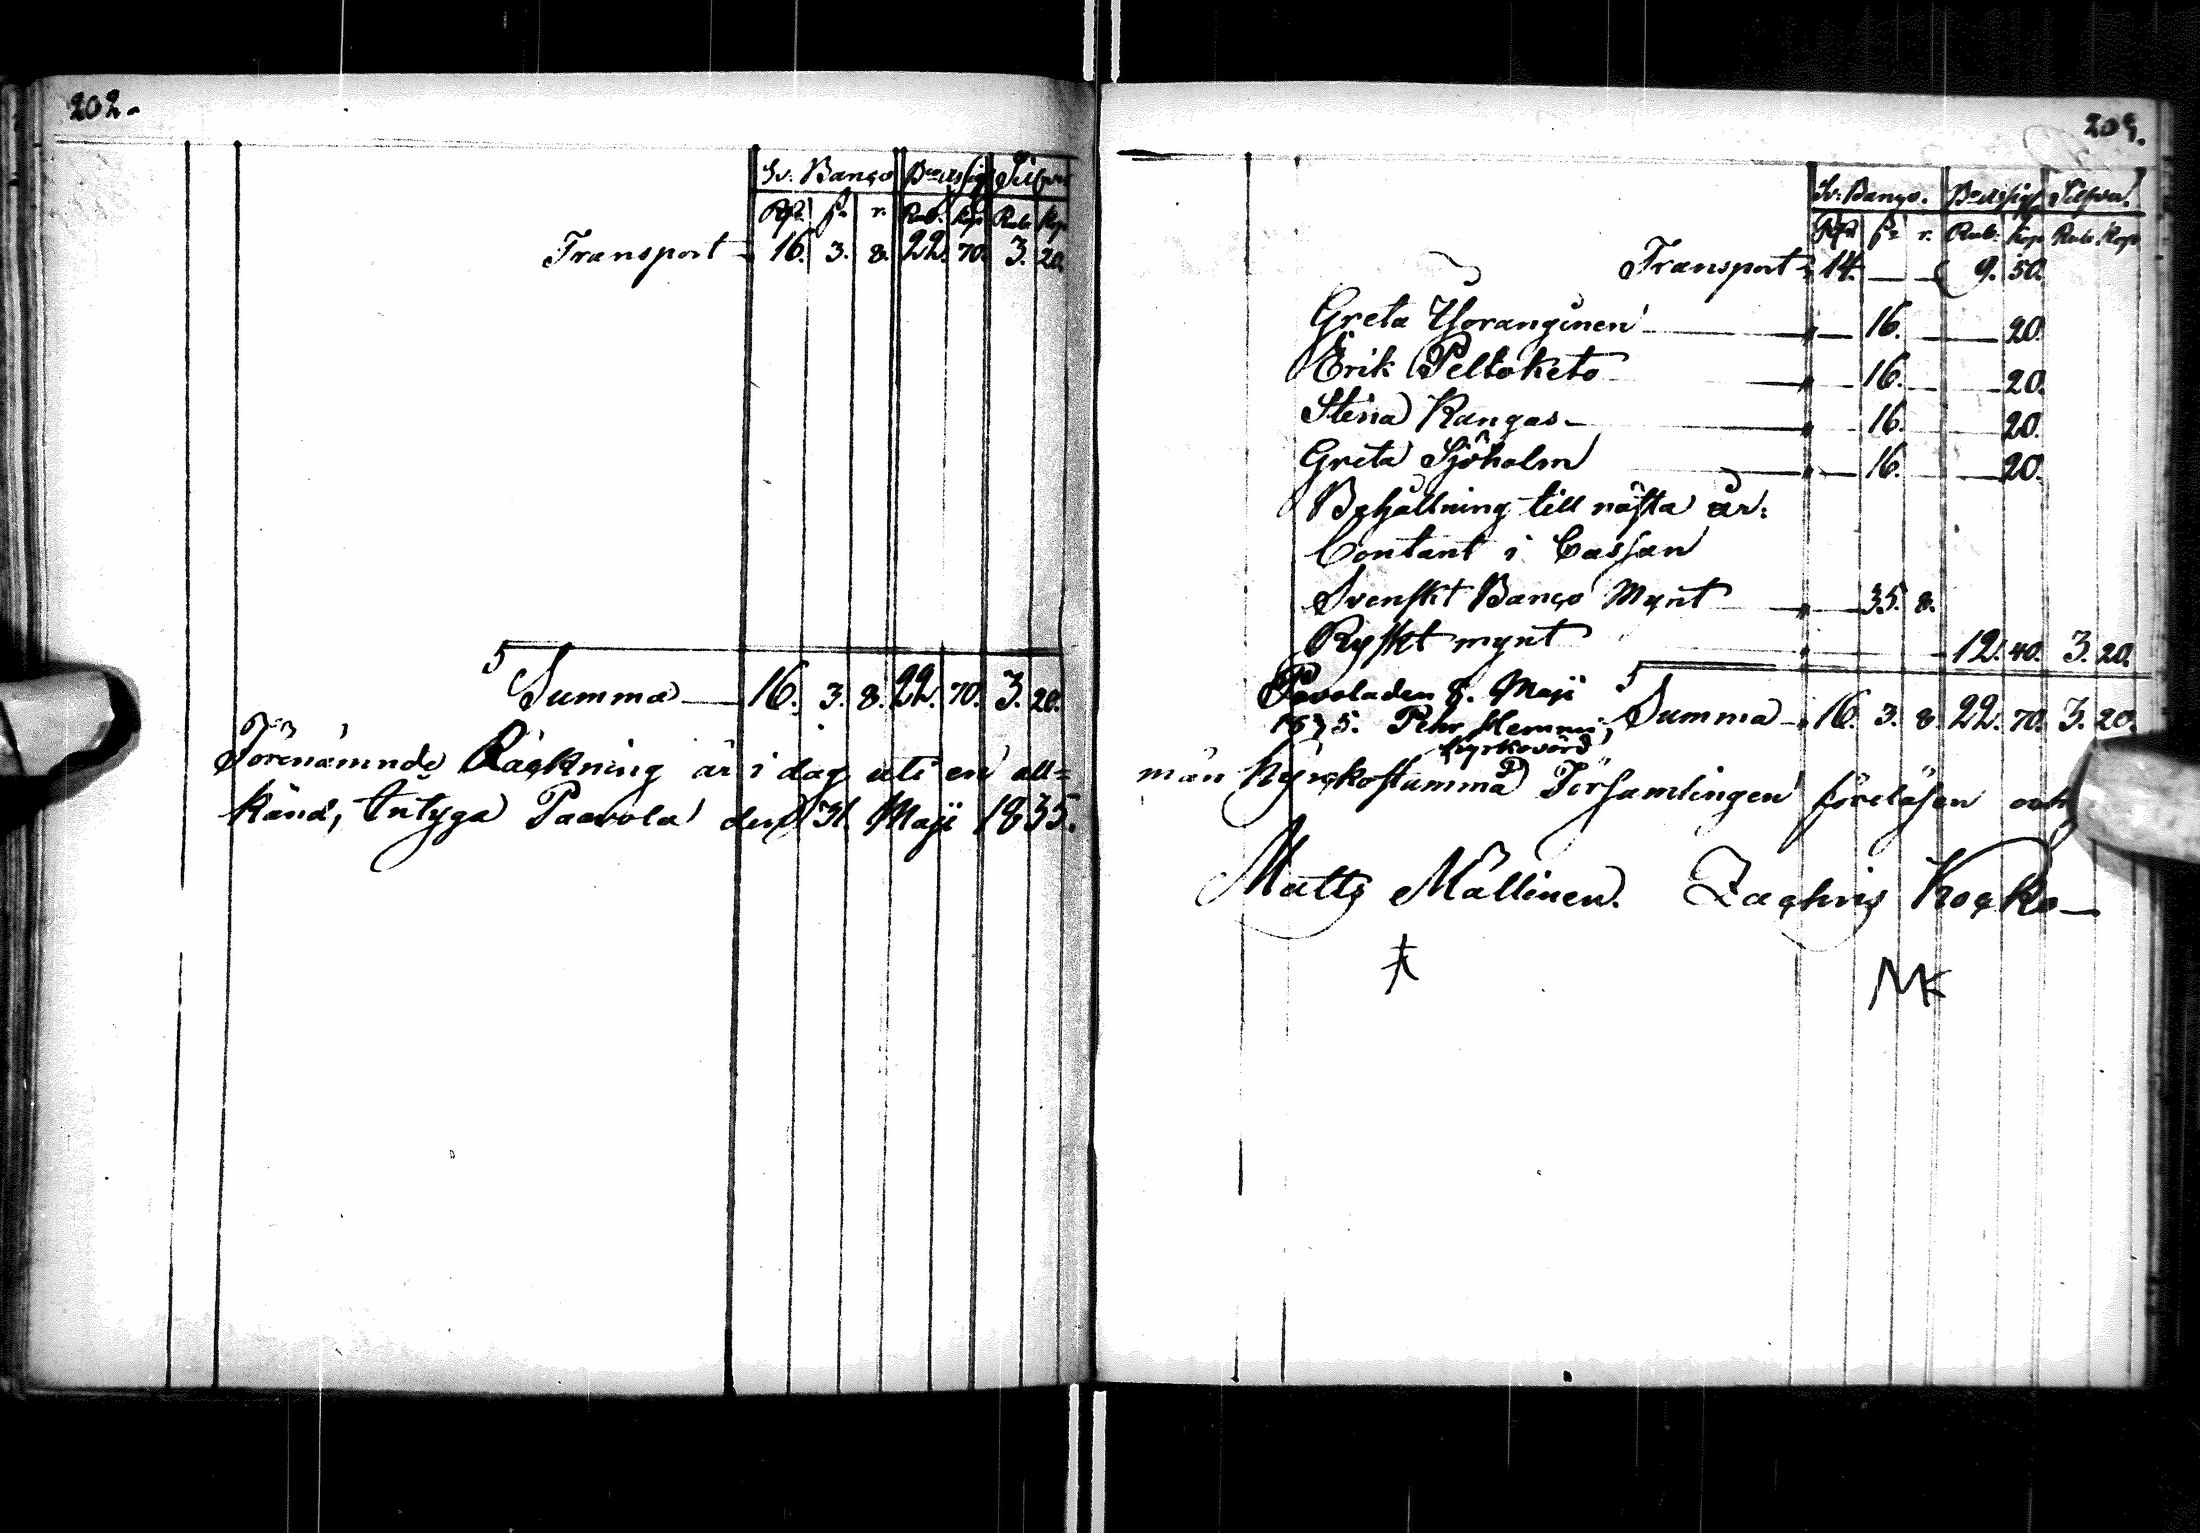 202.
Sv: Banco Bco Assig Silfver
Rdr sk. r. Rub. Kop Rub. Kop
Transport 16. 3. 8. 22. 70. 3. 20.
Summa 16. 3. 8. 22. 70. 3. 20.
Förenämnde Räckning är i dag uti en all=
känd, Intyga Paavola den 31. Maji 1835.
203.
Sv: Banco. Bco Assig Silfver.
Rdr sk. r. Rub. Kop Rub. Kop
Transport 14. — — 9. 50.
Greta Yoranginen 16. 20.
Erik Peltoketo 16. 20.
Stina Kangas 16. 20.
Greta Sjöholm 16. 20.
Behållning till nästa år:
Contant i Cassan
Svenskt Banco Mynt 35. 8.
Ryskt mynt 12. 40. 3. 20.
Pavola den 8. Maji
1835. Pehr Hemmi, Summa 16. 3. 8. 22. 70. 3. 20.
Kyrkovärd
män Kyrckostämma Församlingen föreläsen och
Matts Mällinen. Zachris Kocko
MK